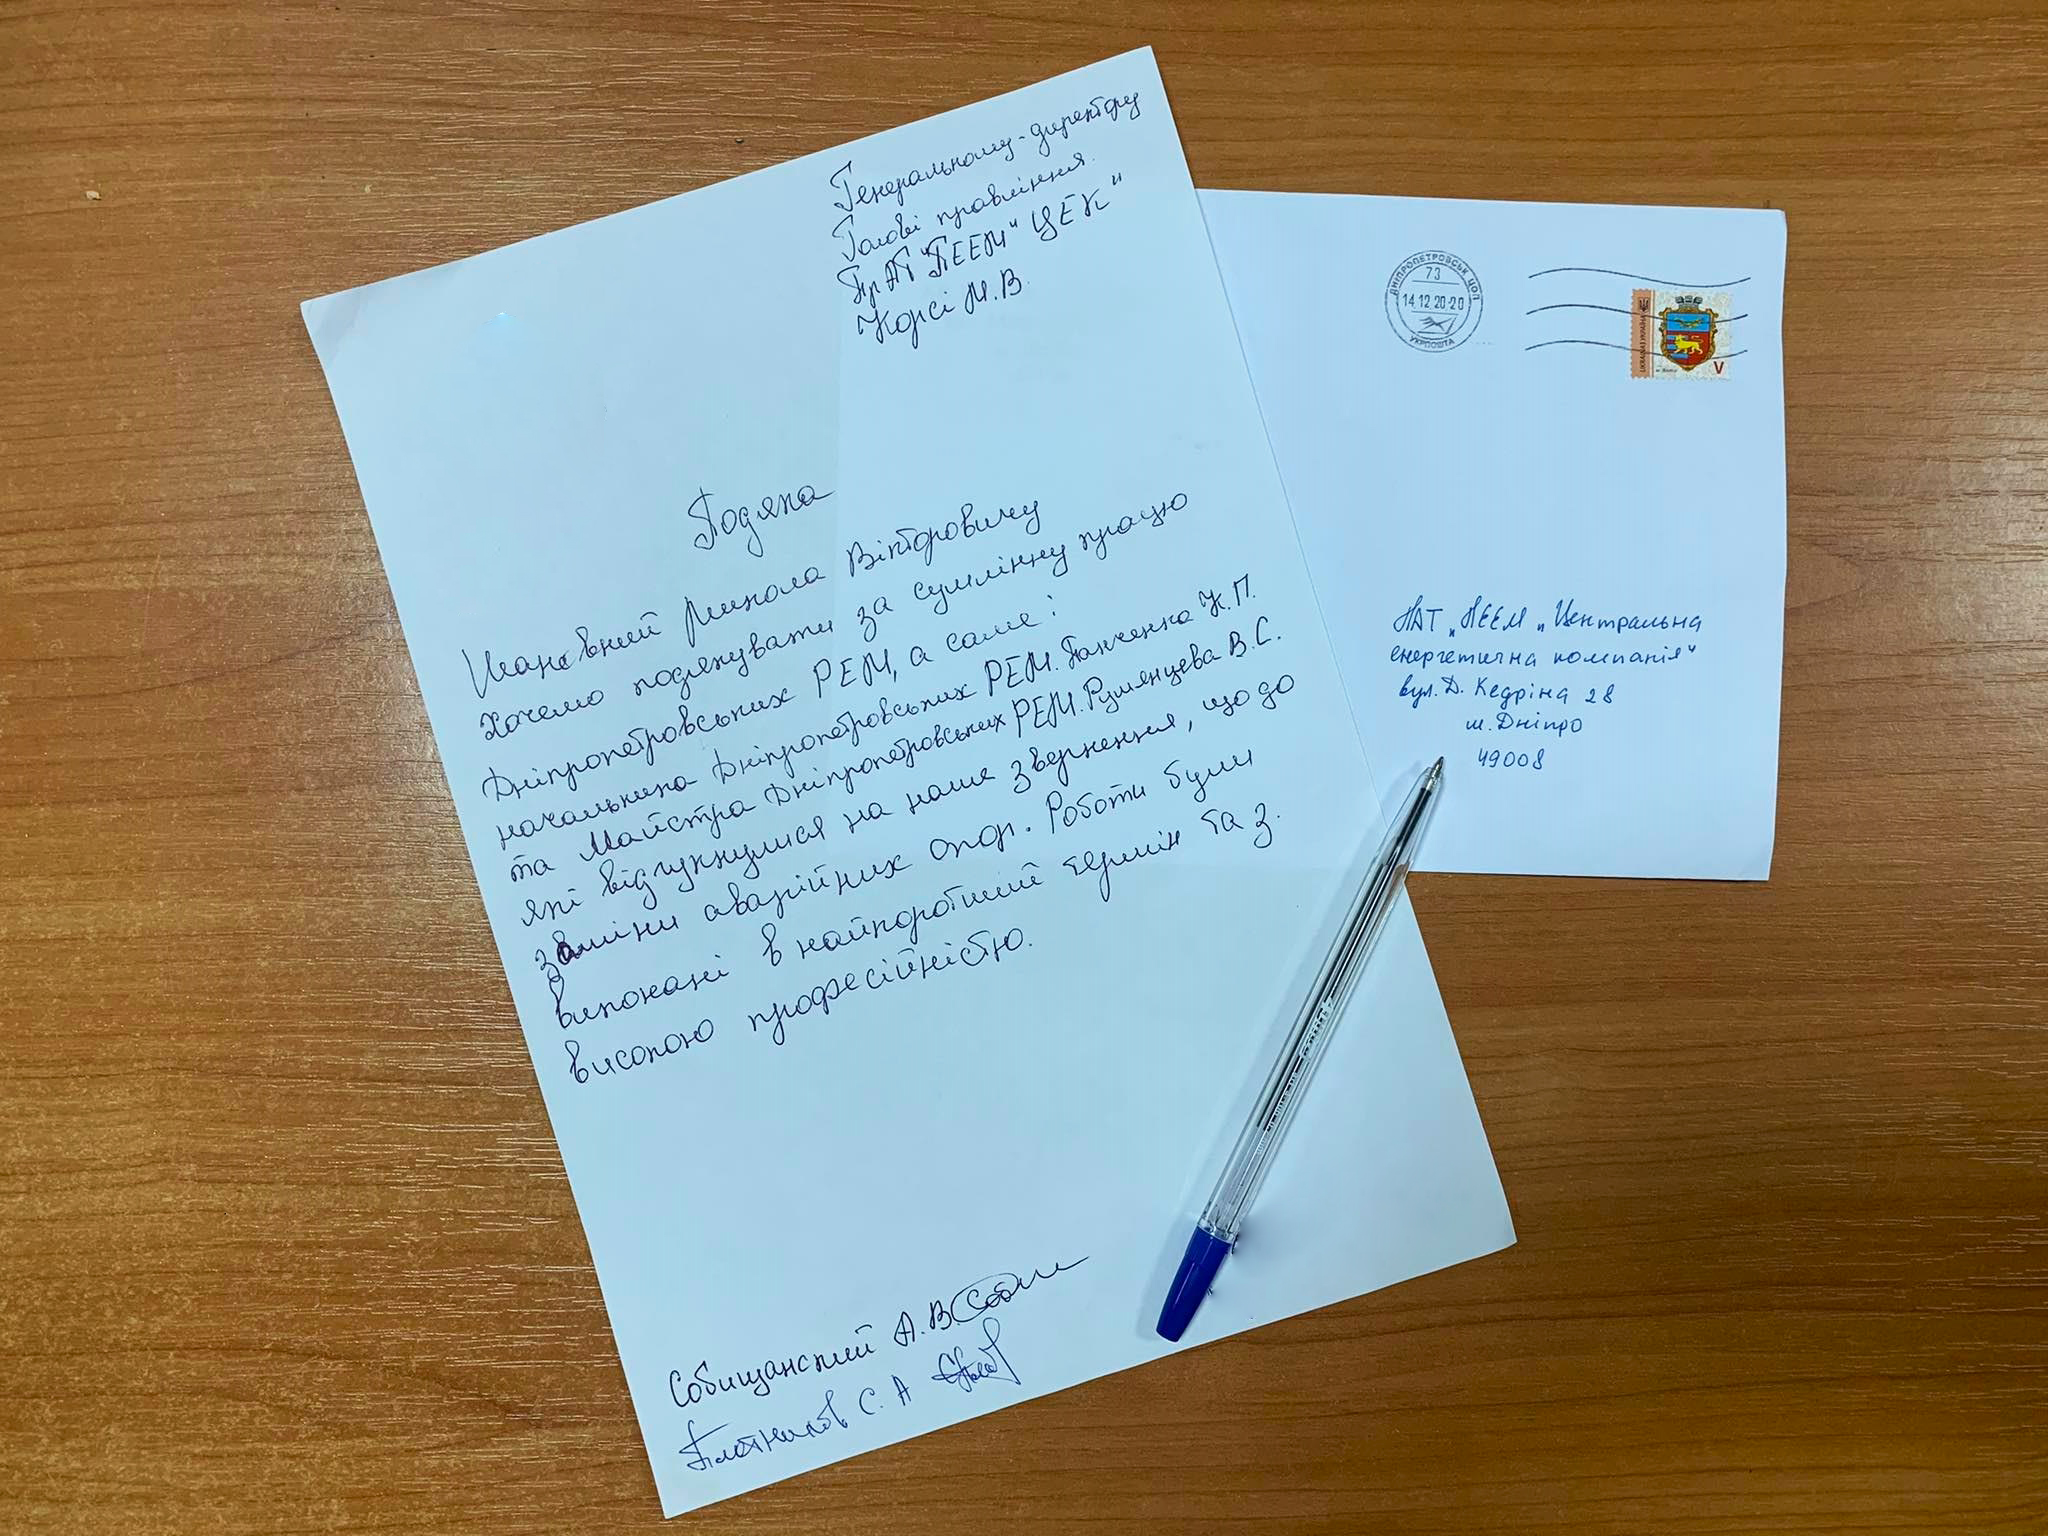 Генеральному-директору
Голові правління
ПрАТ "ПЕЕМ" ЦЕК"
Корсі М.В.
Подяка
Шановний Микола Вікторовичу
Хочемо подякувати за сумлінну працю
Дніпропетровських РЕМ, а саме:
начальника Дніпропетровських РЕМ. Панченка К.П.
та Майстра Дніпропетровських РЕМ. Румянцева В.С.
які відгукнулися на наше звернення, що до
заміни аварійних опор. Роботи були
виконані в найкоротший термін та з.
високою професійністю.
Собищанский А.В.
Плотников С.А
ДНІПРОПЕТРОВСЬК ЦОП
73
14.12.20-20
УКРПОШТА
UKRAINE УКРАЇНА
V
ПАТ „ПЕЕМ „Центральна
енергетична компанія"
вул. Д. Кедріна 28
м. Дніпро
49008